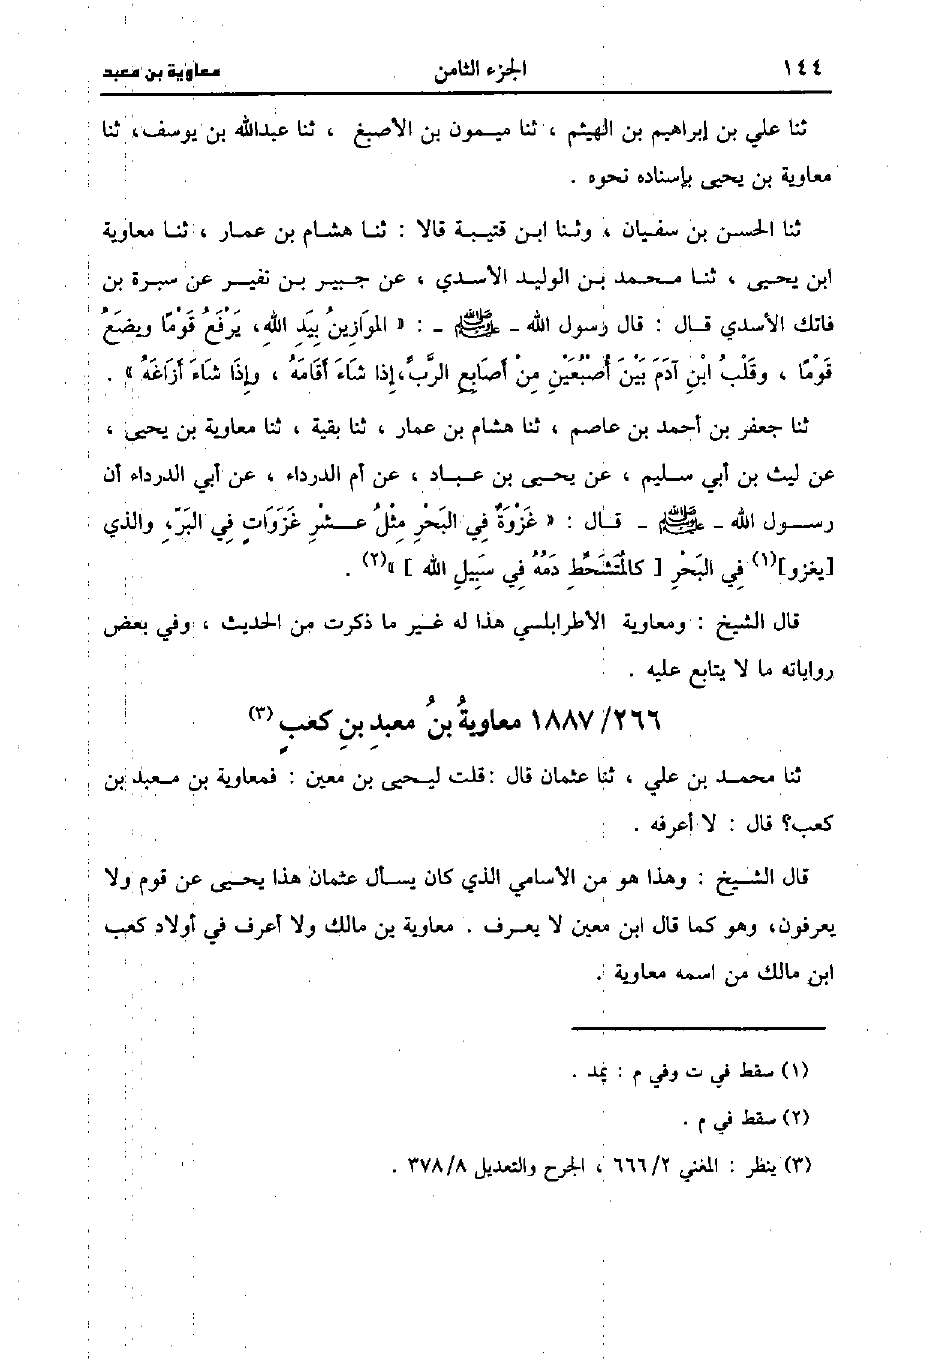 ١٤٤ الجزء الثامن معاوية بن معبد
ثنا علي بن إبراهيم بن الهيثم ، ثنا ميمون بن الأصبغ ، ثنا عبدالله بن يوسف، ثنا
معاوية بن يحيى بإسناده نحوه .
ثنا الحسن بن سفيان ، وثنا ابن قتيبة قالا : ثنا هشام بن عمار ، ثنا معاوية
ابن يحيى ، ثنا محمد بن الوليد الأسدي ، عن جبير بن نفير عن سبرة بن
فاتك الأسدي قال : قال رسول الله - ﷺ - : « الموَازِينُ بِيَدِ اللهِ، يَرْفَعُ قَوْمًا ويضَعُ
قَوْمًا ، وقَلْبُ ابْنِ آدَمَ بَيْنَ أُصْبُعَيْنِ مِنْ أصَابِعِ الرَّبِّ،إذا شَاءَ أقَامَهُ ، وإذَا شَاءَ أزَاغَهُ » .
ثنا جعفر بن أحمد بن عاصم ، ثنا هشام بن عمار ، ثنا بقية ، ثنا معاوية بن يحيى ،
عن ليث بن أبي سليم ، عن يحيى بن عباد ، عن أم الدرداء ، عن أبي الدرداء أن
رسول الله - ﷺ - قال : « غَزْوَةٌ فِي البَحْرِ مِثْلُ عشْرِ غَزَوَاتٍ فِي البَرِّ، والذي
[يغزو](١) فِي البَحْرِ [ كالمُتَشَحِّطِ دَمُهُ فِي سَبِيلِ الله ] »(٢) .
قال الشيخ : ومعاوية الأطرابلسي هذا له غير ما ذكرت من الحديث ، وفي بعض
رواياته ما لا يتابع عليه .
١٨٨٧/٢٦٦ معاويةُ بنُ معبدِ بنِ كعبٍ (٣)
ثنا محمد بن علي ، ثنا عثمان قال :قلت ليحيى بن معين : فمعاوية بن معبد بن
كعب؟ قال : لا أعرفه .
قال الشيخ : وهذا هو من الأسامي الذي كان يسأل عثمان هذا يحيى عن قوم ولا
يعرفون، وهو كما قال ابن معين لا يعرف . معاوية بن مالك ولا أعرف في أولاد كعب
ابن مالك من اسمه معاوية .
(١) سقط في ت وفي م : يمد .
(٢) سقط في م .
(٣) ينظر : المغني ٦٦٦/٢ ، الجرح والتعديل ٣٧٨/٨ .